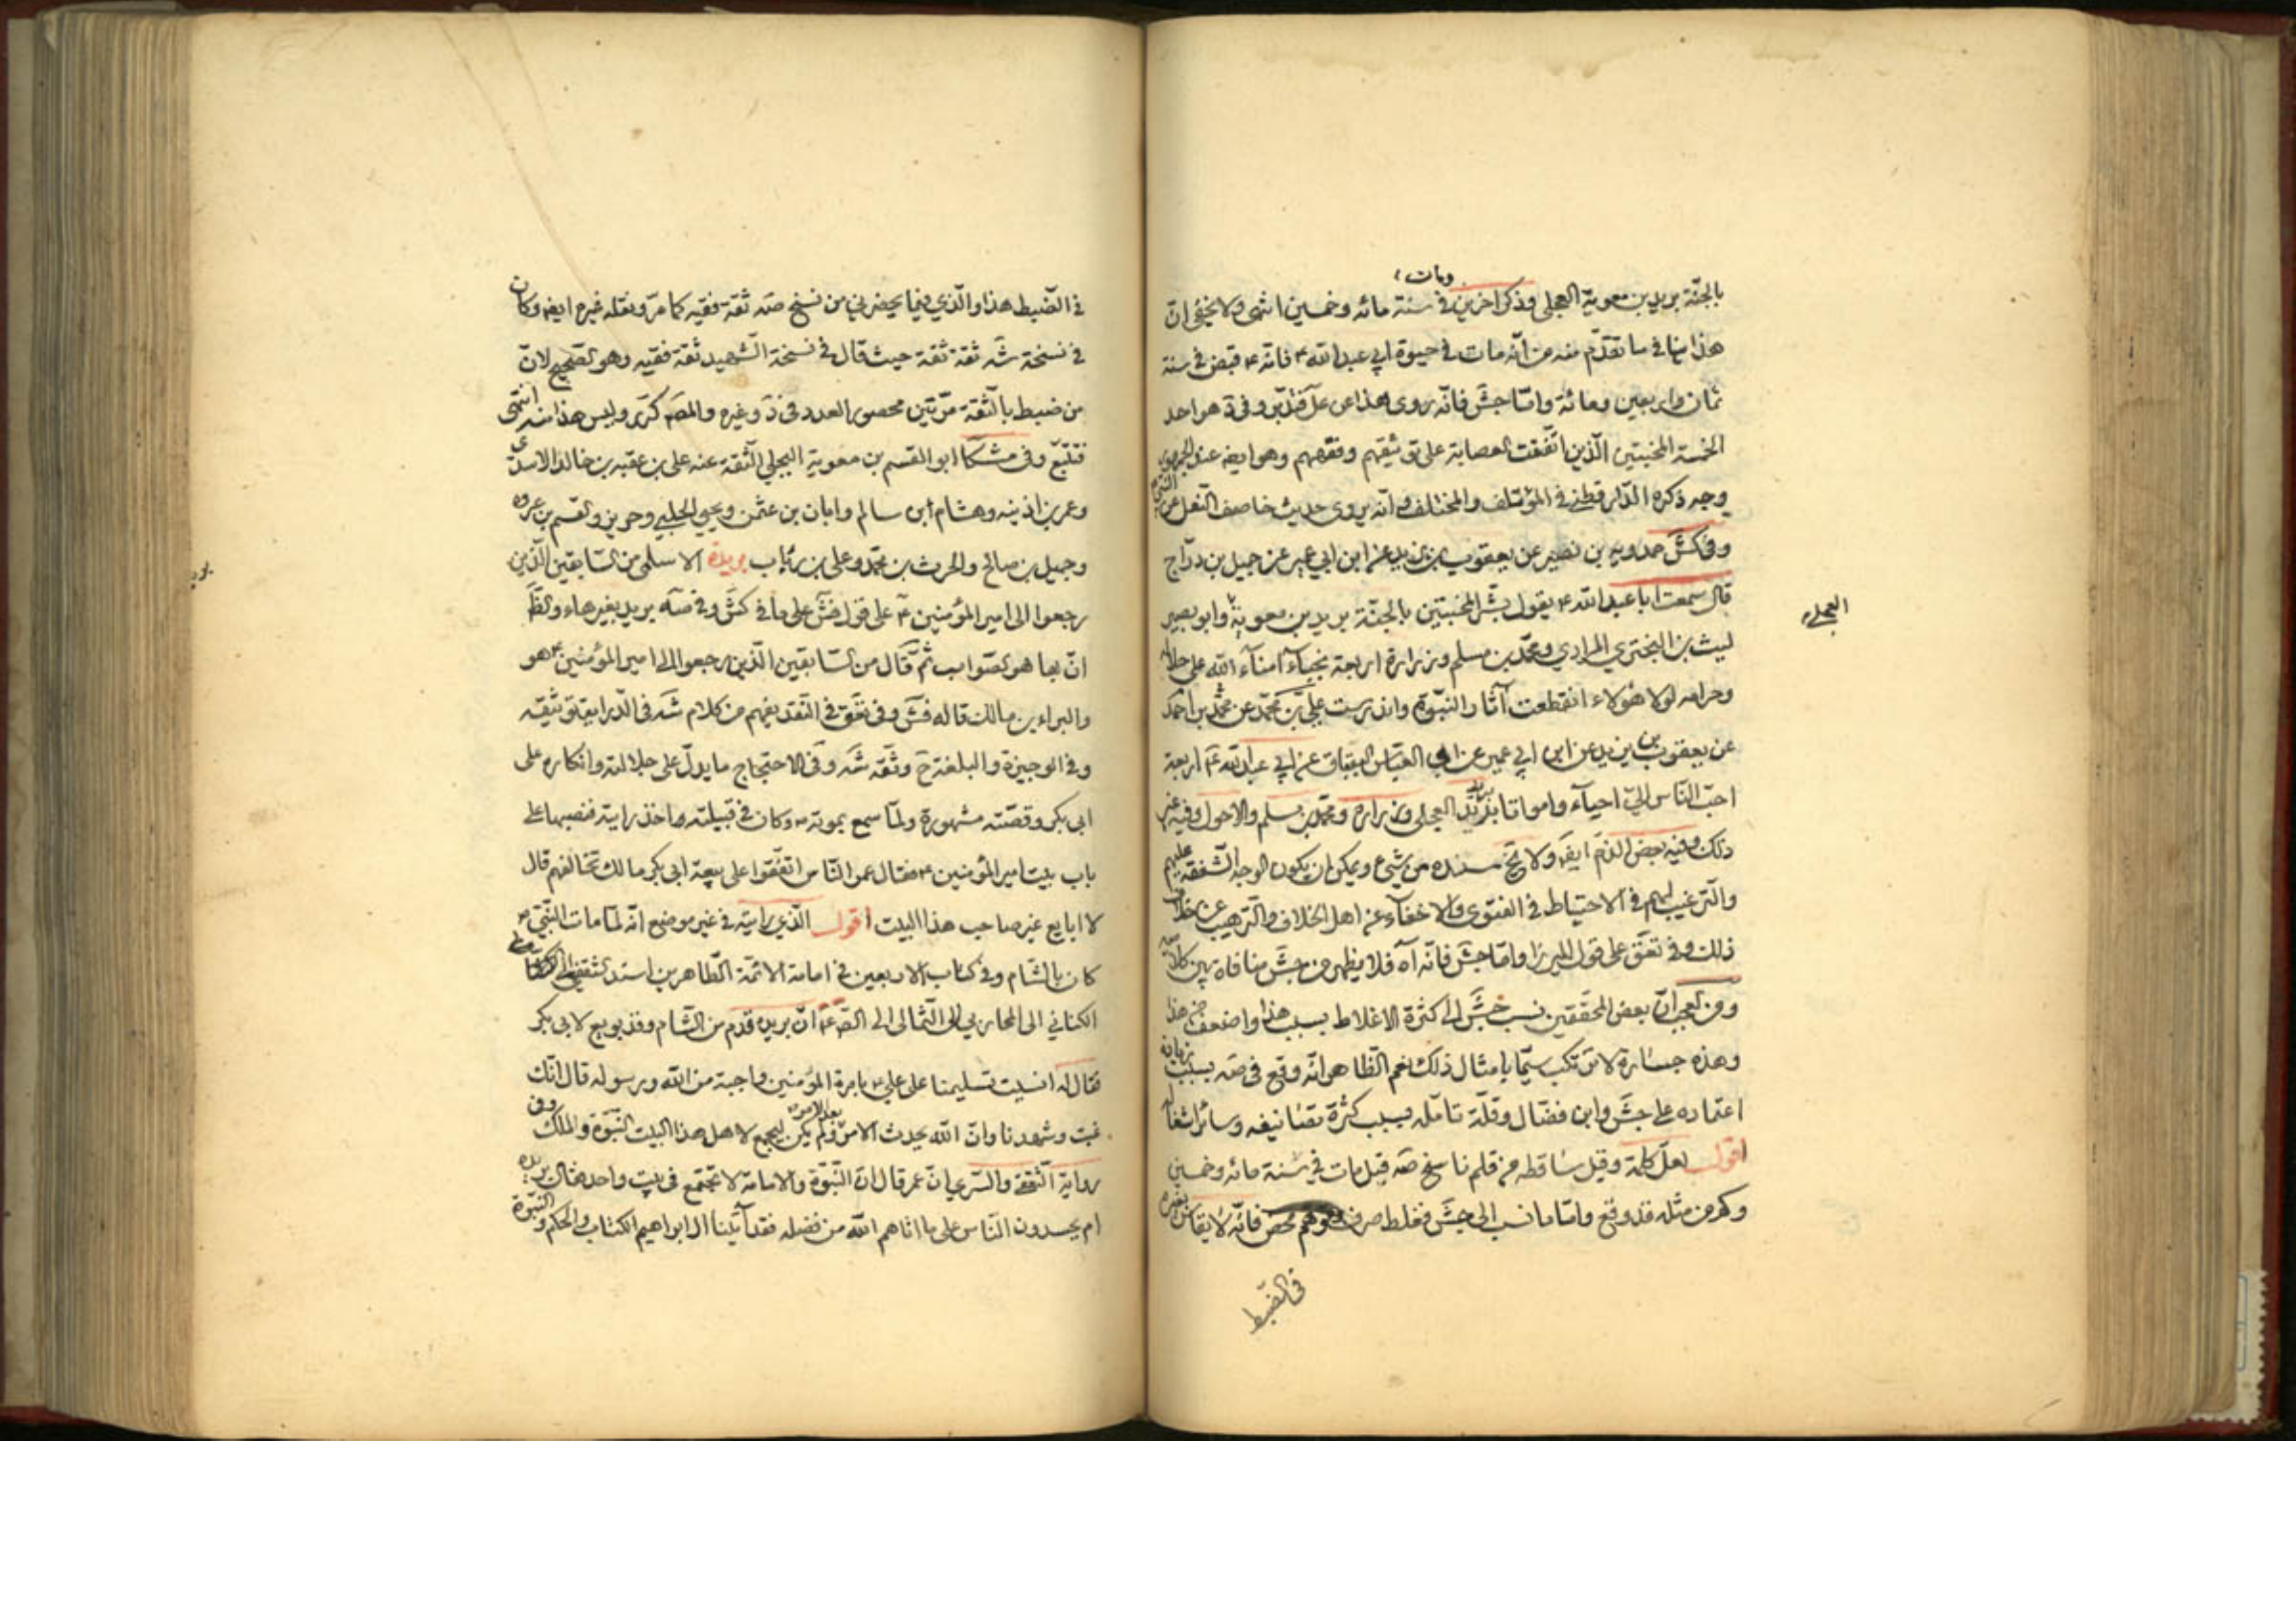 بالجنّة بريد بن معوية العجلي وذكر اخرين ومات في سنة مائه وخمسين انتهى ولا يخفى انّ
هذا ينافي ما تقدّم منه من انّه مات في حيوة ابي عبد الله ع فانّه ع قبض في سنة
ثمان واربعين ومائة وامّا جش فانّه روى هذا عن علي بن فضّال وفي د هو احد
الخمسة المخبتين الّذين اتّفقت العصابة على توثيقهم وفقههم وهو ايضه عند الجمهور
وجه ذكره الدّار قطني في المؤتلف والمختلف وانّه يروى حديث خاصف النّعل عن النبي ص
وفي كش حمدويه بن نصير عن يعقوب بن يزيد عن ابن ابي عمير عن جميل بن درّاج
قال سمعت ابا عبد الله ع يقول بشّر المخبتين بالجنّة بريد بن معوية العجلي وابو بصير
ليث بن البختري المرادي ومحمّد بن مسلم وزرارة اربعة نجباء امناء الله على حلاله
وحرامه لولا هؤلاء انقطعت آثار النّبوّة واندرست علي بن محمّد عن محمّد بن احمد
عن يعقوب بن يزيد عن ابن ابي عمير عن ابي العبّاس البقباق عن ابي عبد الله ع اربعة
احبّ النّاس اليّ احياء وامواتا بريد العجلي وزراره ومحمّد بن مسلم والاحول وفيه غير
ذلك وفيه بعض الذّم ايضه ولا يخ سنده من شيء ويمكن ان يكون الوجه الشّفقة عليهم
والتّرغيب لهم في الاحتياط في الفتوى والاخفاء عن اهل الخلاف والتّرهيب عن خلاف
ذلك وفي تعق على قول الميرزا وامّا جش فانّه آه فلا يظهر من جش منافاة بين كلاميه
ومن العجب انّ بعض المحقّقين نسب جش الى كثرة الاغلاط بسبب هذا واضعف من هذا
وهذه جسارة لا ترتكب سيّما بامثال ذلك نعم الظّاهر انّه وقع في صه بسبب زيادة
اعتماده على جش وابن فضّال وقلّة تامّله بسبب كثرة تصانيفه وسائر اشغاله
اقول لعلّ كلمة وقيل ساقطه من قلم ناسخ صه قبل مات في سنة مائه وخمسين
وكم من مثله قد وقع وامّا ما نسب الى جش فغلط صرف وتوهّم محض فانّه لا يقاس بغيره
في الضّبط
العجلي
في الضّبط هذا والّذي فيما يحضرني من نسخ صه ثقة فقيه كما مرّ ونقله غيره ايضه وكان
في نسخة شه ثقة ثقة حيث قال في نسخة الشّهيد ثقة فقيه وهو الصّحيح لانّ
من ضبط بالثّقة مرّتين محصور العدد في د وغيره والمصه كرّى وليس هذا منه انتهى
فتتبّع وفي مشكا ابو القسم بن معوية البجلي الثّقة عنه علي بن عقبه بن خالد الاسدي
وعمر بن اذينه وهشام ابن سالم وابان بن عثمن ويحيى الحلبي وحريز والقسم بن عروه
وجميل بن صالح والحرث بن محمّد وعلي بن رئاب بريدة الاسلمي من السّابقين الّذين
رجعوا الى امير المؤمنين ع على قول فش على ما في كش وفي صه بريد بغير هاء والظّ
انّ بها هو الصّواب ثمّ قال من السّابقين الّذين رجعوا الى امير المؤمنين ع هو
والبراء بن مالك قاله فش وفي تعق في النّقد يفهم من كلام شه في الدّراية توثيقه
وفي الوجيزة والبلغة ح وثّقه شه وفي الاحتجاج ما يدلّ على جلالته وانكاره على
ابي بكر وقصّته مشهورة ولمّا سمع بموته ص وكان في قبيلته اخذ رايته فنصبها على
باب بيت امير المؤمنين ع فقال عمر النّاس اتّفقوا على بيعة ابي بكر مالك تخالفهم قال
لا ابايع غير صاحب هذا البيت اقول الّذي رايته في غير موضع انّه لمّا مات النّبيّ ص
كان بالشّام وفي كتاب الاربعين في امامة الائمّة الطّاهرين اسند الثقفي الى
الكناني الى المحاربي الى الثّمالى الى الصّ ع انّ بريده قدم من الشّام وقد بويع لابي بكر
فقال له انسيت تسليمنا على علي ع بامرة المؤمنين واجبة من الله ورسوله قال انّك
غبت وشهدنا وانّ الله يحدث الامر بعد الامر ولم يكن ليجمع لاهل هذا البيت النّبوّة والملك وفي
رواية الثّقفي والسّري انّ عمر قال انّ النّبوّة والامامة لا تجتمع في بيت واحد فقال بريده
ام يحسدون النّاس على ما اتاهم الله من فضله فقد آتينا ال ابراهيم الكتاب والحكم والنّبوّة